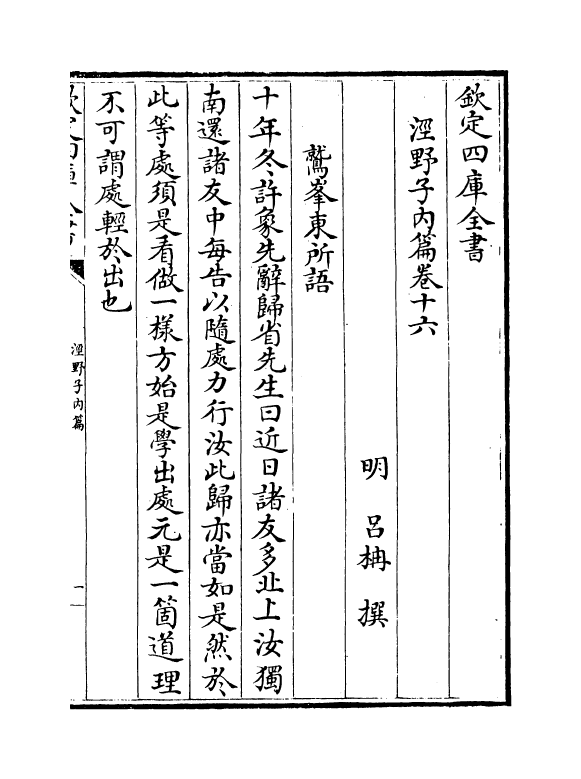 欽定四庫全書
涇野子內篇卷十六
明 呂柟 撰
鷲峯東所語
十年冬許象先辭歸省先生曰近日諸友多北上汝獨
南還諸友中每告以隨處力行汝此歸亦當如是然於
此等處須是看做一樣方始是學出處元是一箇道理
不可謂處輕於出也
欽定四庫全書
涇野子內篇
一